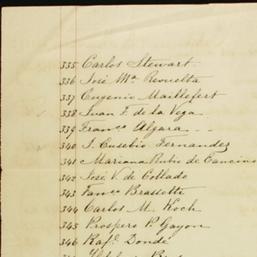 335 Carlos Stewart
336 José Mª Revuelta
337 Eugenio Maillefert
338 Juan F. de la Vega
339 Franco Algara
340 J. Eusebio Fernandez
341 Mariana Rubio de Cancino
342 José V. de Collado
343 Franco Brassetti
344 Carlos M. Koch
345 Prospero P. Gayon
346 Raf. Donde